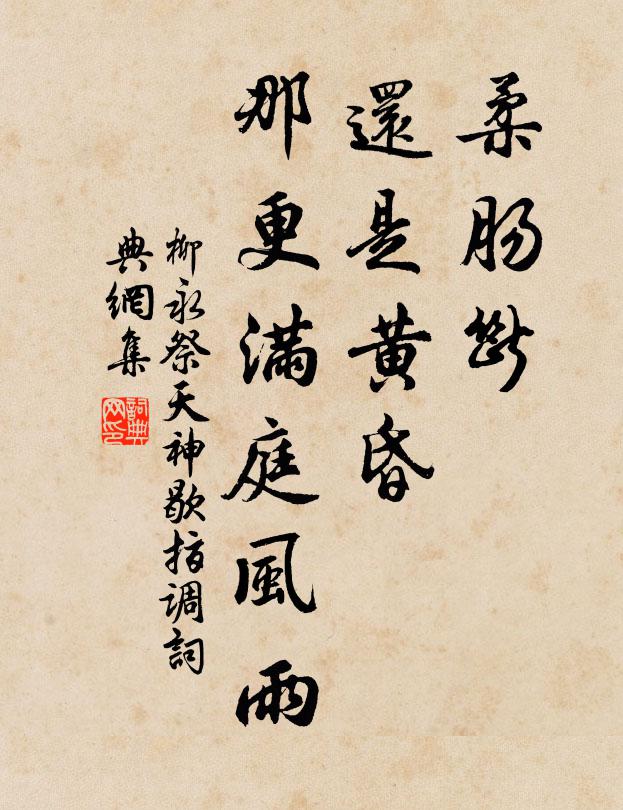 柔腸斷
還是黃昏
那更滿庭風雨
柳永祭天神歇指调詞
典網集
詞典
网印